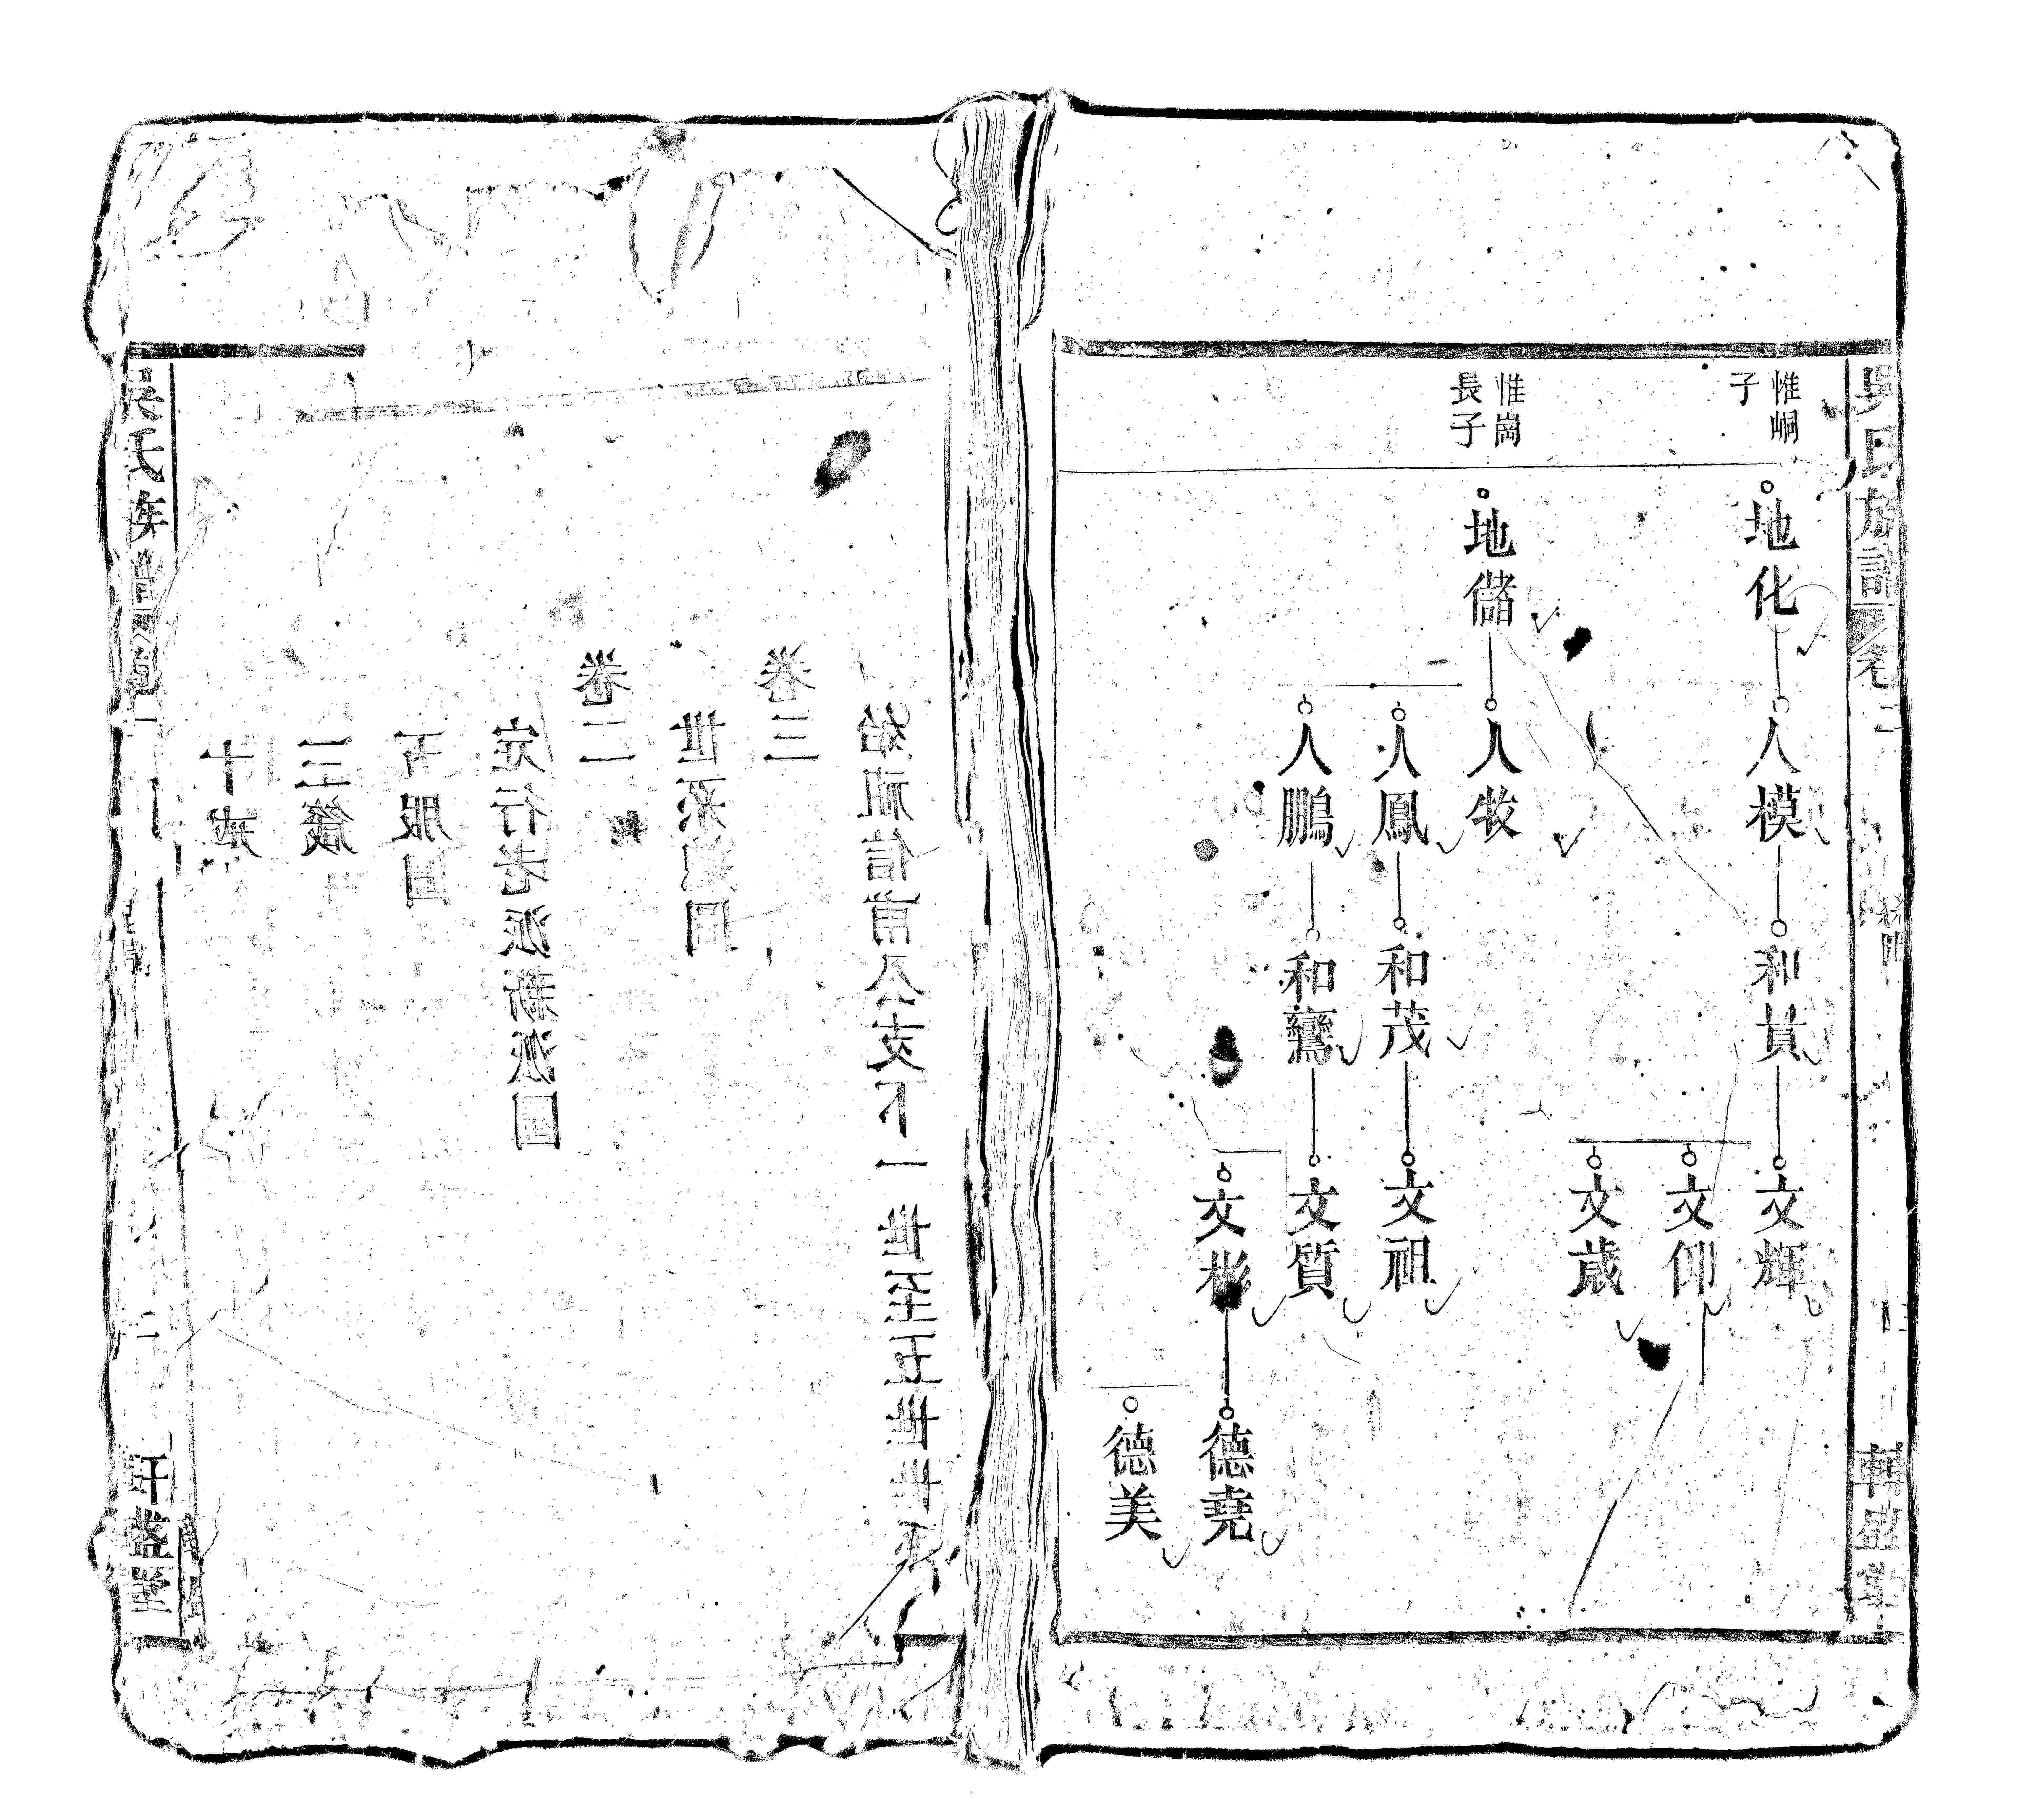 吳氏族譜 卷二
惟峒
子
地化 人模 和貟 文輝
文仰
文葳
惟崗
長子
地儲 人牧
人鳳 和茂 文祖
人鵬 和鸞 文質
文彬 德堯
德美
始祖信甫公支下一世至五世世系
卷三
世系總圖
卷二
定行老派新派圖
五服圖
三箴
十戒